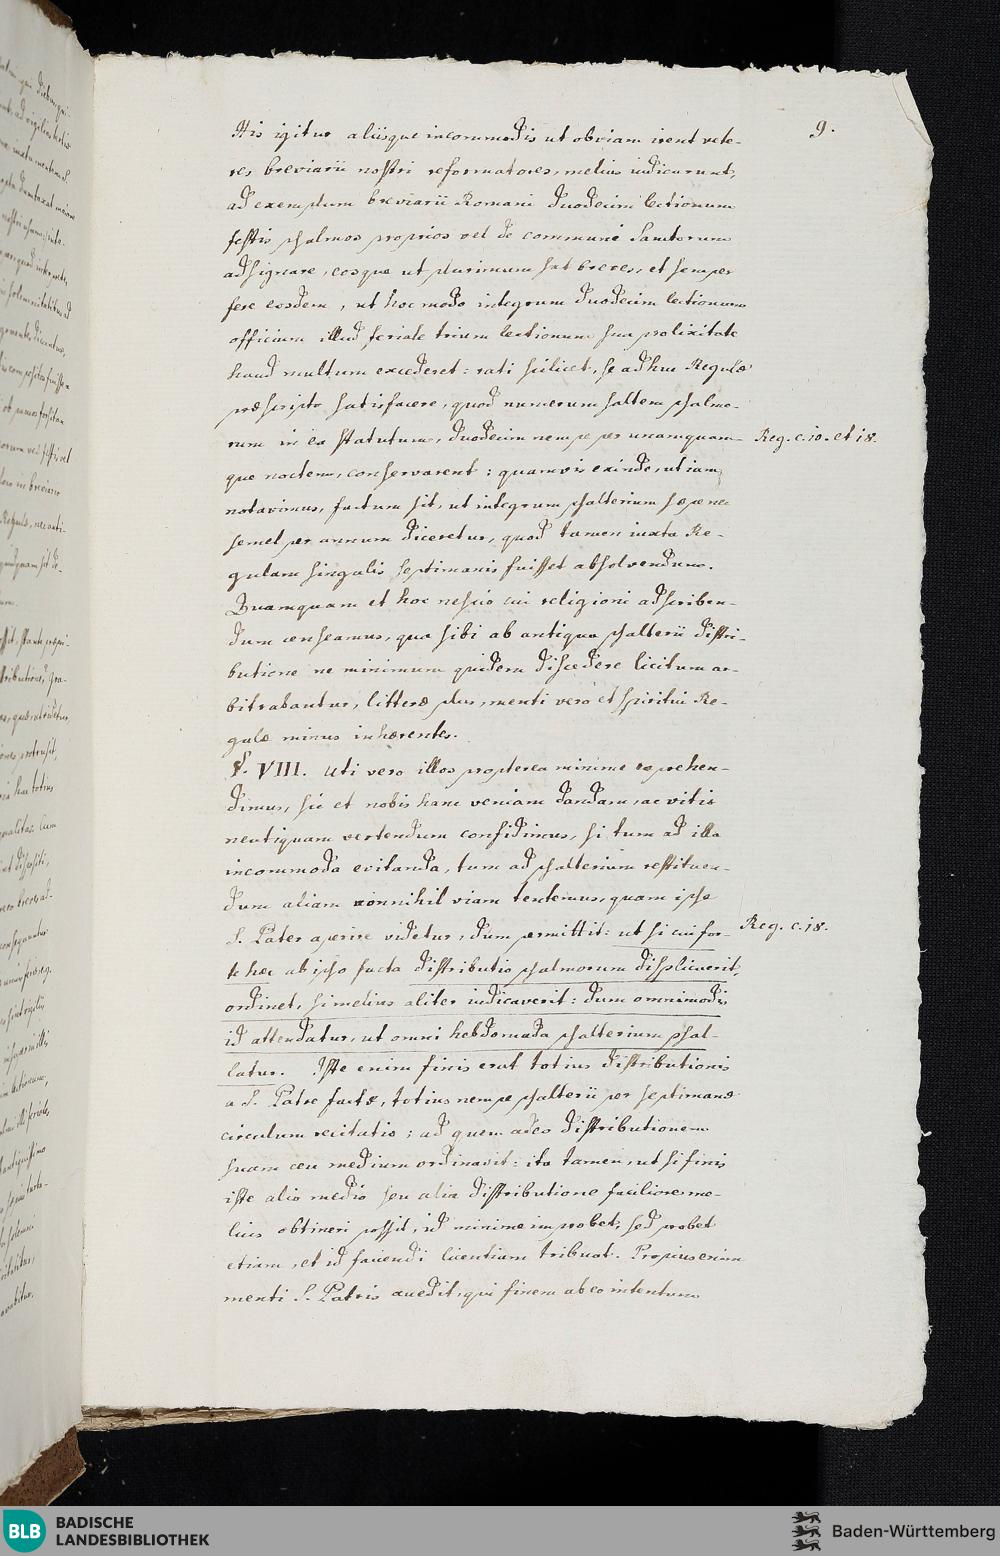 9.
His igitur aliisque incommodis ut obviam irent vete-
res breviarii nostri reformatores, melius iudicarunt,
ad exemplum breviarii Romani duodecim lectionum
festis psalmos proprios vel de communi Sanctorum
adsignare, eosque ut plurimum sat breves, et semper
fere eosdem, ut hoc modo integrum duodecim lectionum
officium illud feriale trium lectionum sua prolixitate
haud multum excederet: rati scilicet, se adhuc Regulæ
præscripto satisfacere, quod numerum saltem psalmo-
rum in ea statutum, duodecim nempe per unamquam-
Reg. c. 10. et 18.
que noctem, conservarent: quamvis exinde, ut iam
notavimus, factum sit, ut integrum psalterium sæpe nec
semel per annum diceretur, quod tamen iuxta Re-
gulam singulis septimanis fuisset absolvendum.
Quamquam et hoc nescio cui religioni adscriben-
dum censeamus, qua sibi ab antiqua psalterii distri-
butione ne minimum quidem discedere licitum ar-
bitrabantur, litteræ plus, menti vero et spiritui Re-
gulæ minus inhærentes.
§. VIII. Uti vero illos propterea minime reprehen-
dimus, sic et nobis hanc veniam dandam, ac vitio
neutiquam vertendum confidimus, si tum ad illa
incommoda evitanda, tum ad psalterium restituen-
dum aliam nonnihil viam tentemus, quam ipse
S. Pater aperire videtur, dum permittit: ut si cui for-
Reg. c. 18.
te hæc ab ipso facta distributio psalmorum displicuerit,
ordinet, si melius aliter iudicaverit: dum omnimodis
id attendatur, ut omni hebdomada psalterium psal-
latur. Iste enim finis erat totius distributionis
a S. Patre factæ, totius nempe psalterii per septimanæ
circulum recitatio; ad quem adeo distributionem
suam ceu medium ordinavit: ita tamen, ut si finis
iste alio medio seu alia distributione faciliore me-
lius obtineri possit, id minime improbet, sed probet
etiam, et id faciendi licentiam tribuat. Propius enim
menti S. Patris accedit, qui finem ab eo intentum
BLB
BADISCHE
LANDESBIBLIOTHEK
Baden-Württemberg